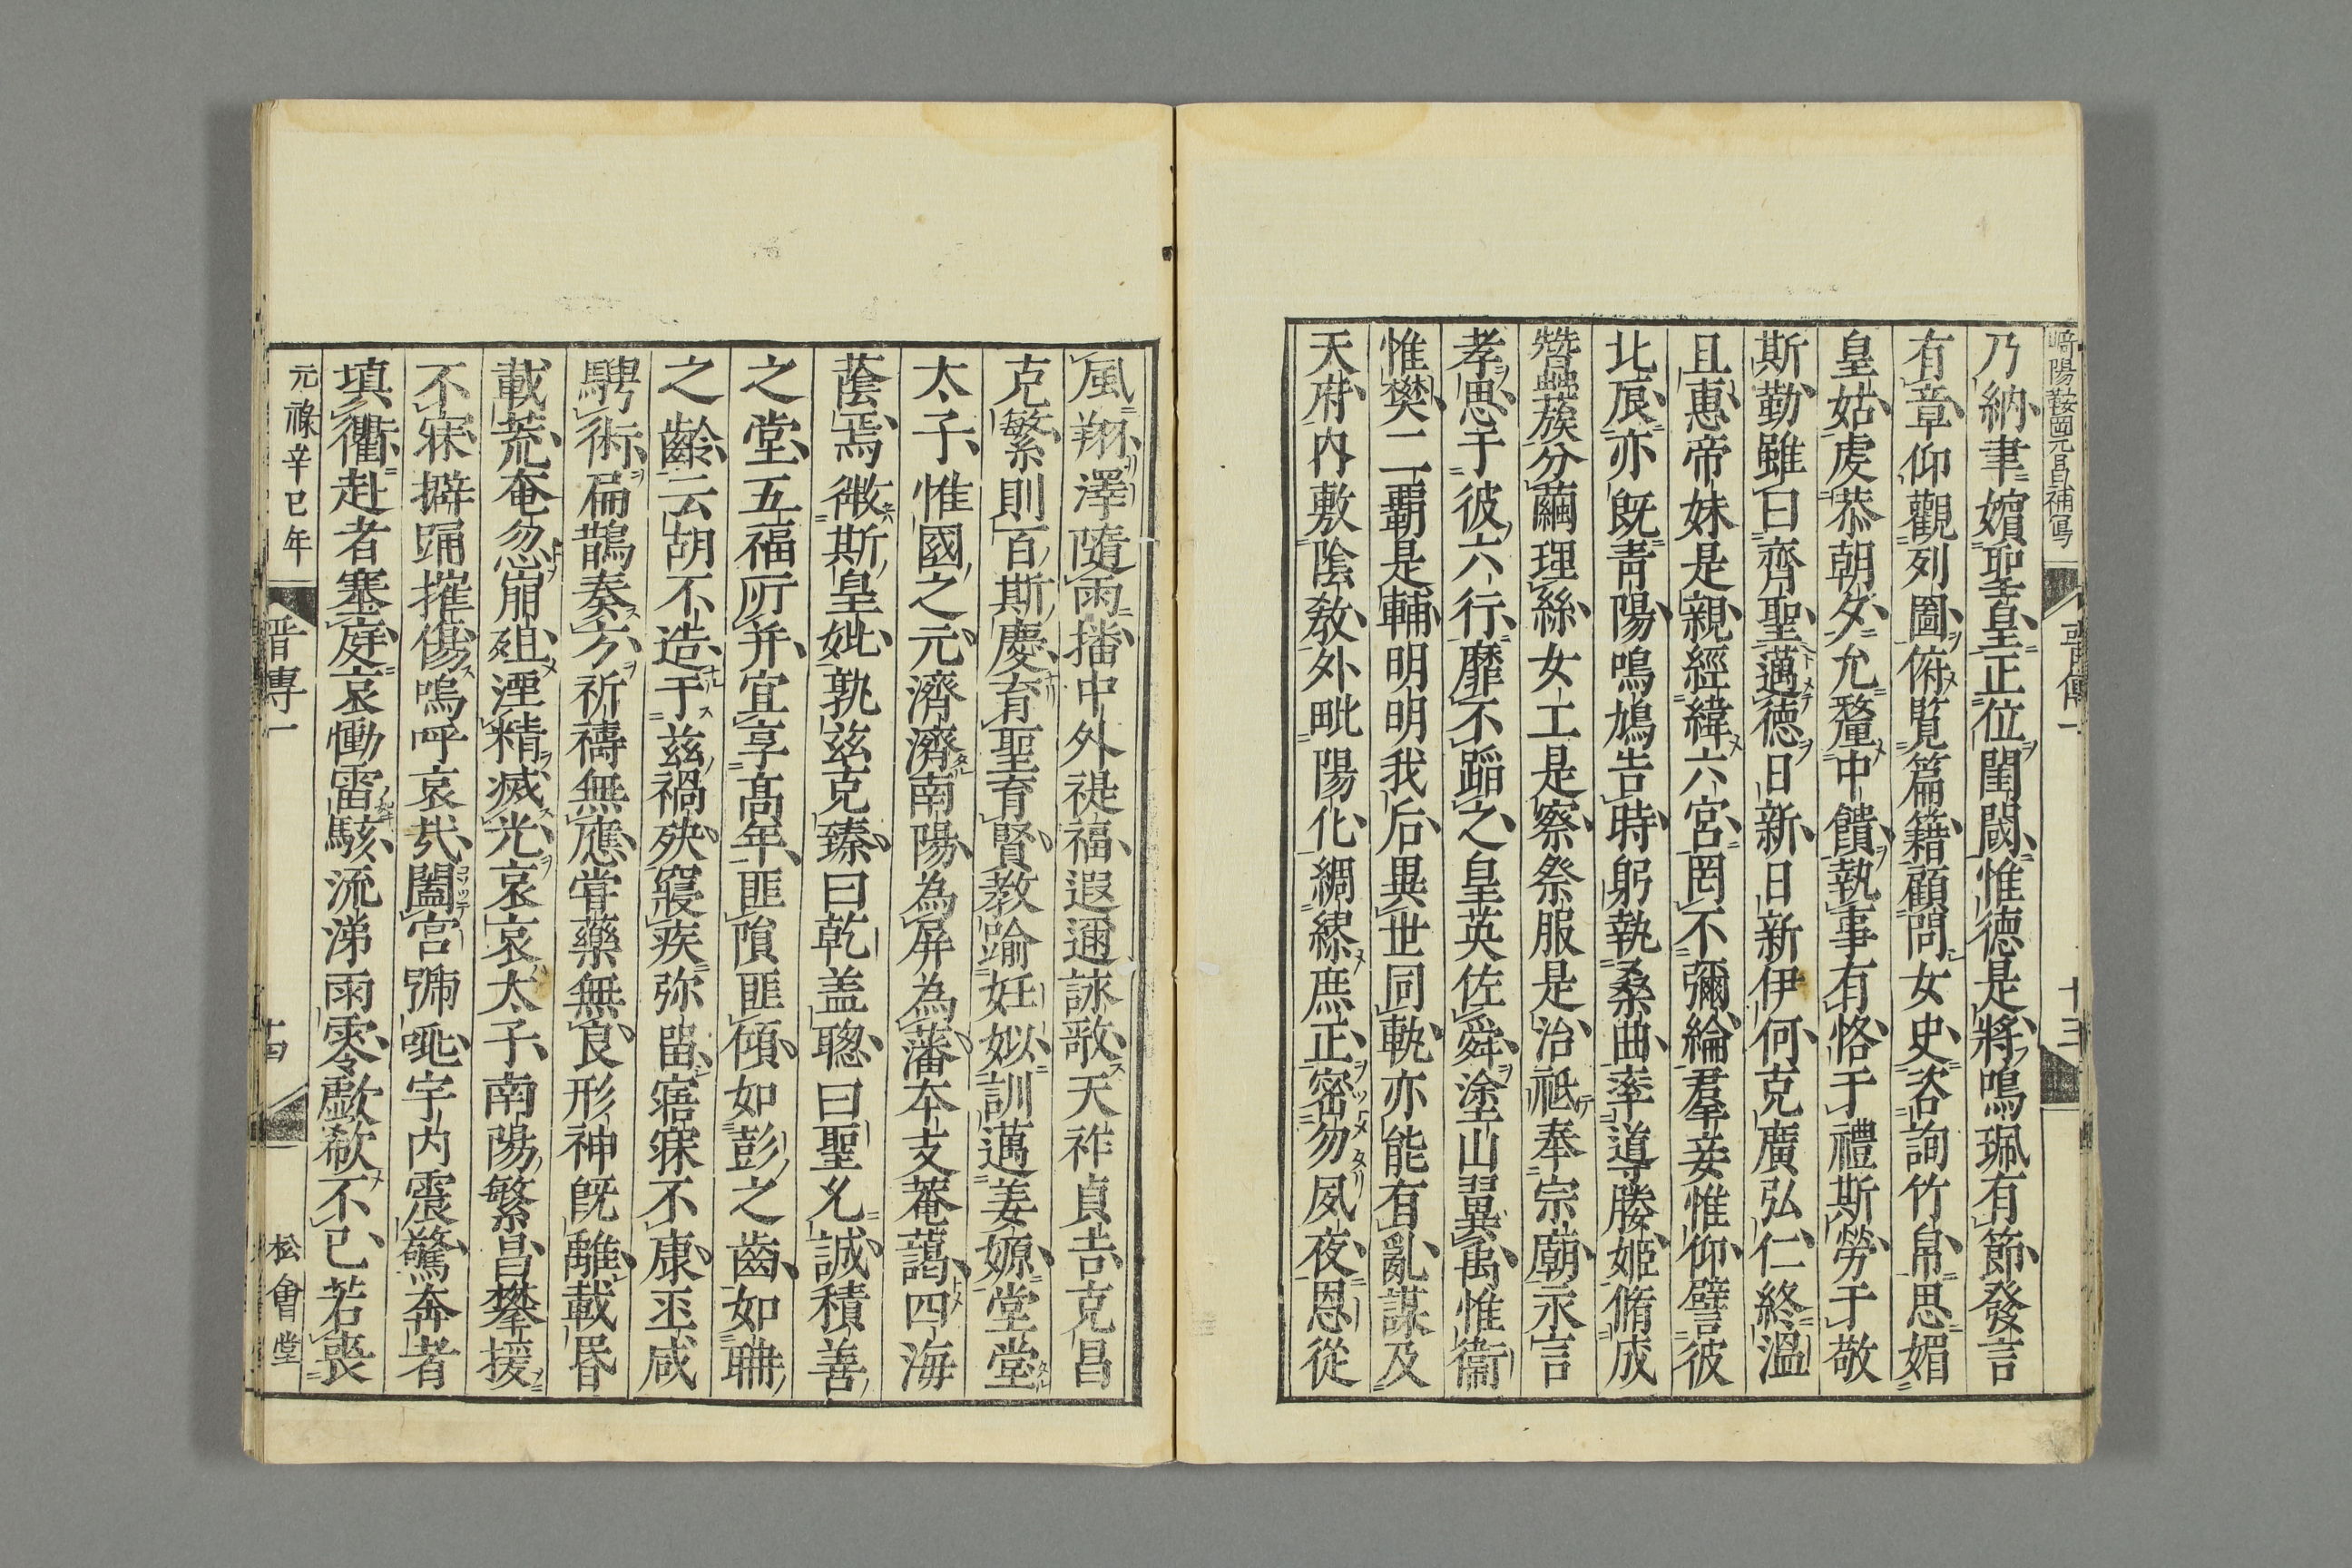 崎陽鞍岡元昌補寫
晉傳一
十三
乃納聿嬪聖皇正位閨閾惟德是將鳴珮有節發言
有章仰觀列圖俯覽篇籍顧問女史咨詢竹帛思媚
皇姑虔恭朝夕允釐中饋執事有恪于禮斯勞于敬
斯勤雖曰齊聖邁德日新日新伊何克廣弘仁終溫
且惠帝妹是親經緯六宮罔不彌綸羣妾惟仰譬彼
北辰亦既青陽鳴鳩告時躬執桑曲率導媵姬脩成
蠶蔟分繭理絲女工是察祭服是治祗奉宗廟永言
孝思于彼六行靡不蹈之皇英佐舜塗山翼禹惟衛
惟樊二覇是輔明明我后異世同軌亦能有亂謀及
天府內敷陰教外毗陽化綢繆庶正密勿夙夜恩從
風翔澤隨雨播中外禔福遐邇詠歌天祚貞吉克昌
克繁則百斯慶育聖育賢教踰妊姒訓邁姜嫄堂堂
太子惟國之元濟濟南陽為屏為藩本支菴藹四海
蔭焉微斯皇妣孰茲克臻曰乾盖聰曰聖允誠積善
之堂五福所并宜享高年匪隕匪傾如彭之齒如聃
之齡云胡不造于茲禍殃寢疾弥留寤寐不康巫咸
騁術扁鵲奏方祈禱無應甞藥無良形神既離載昬
載荒奄忽崩殂湮精滅光哀哀太子南陽繁昌攀援
不寐擗踊摧傷嗚呼哀㦲闔宮號咷宇內震驚奔者
填衢赴者塞庭哀慟雷駭流涕雨零歔欷不已若喪
元祿辛巳年
晉傳一
十四
松會堂